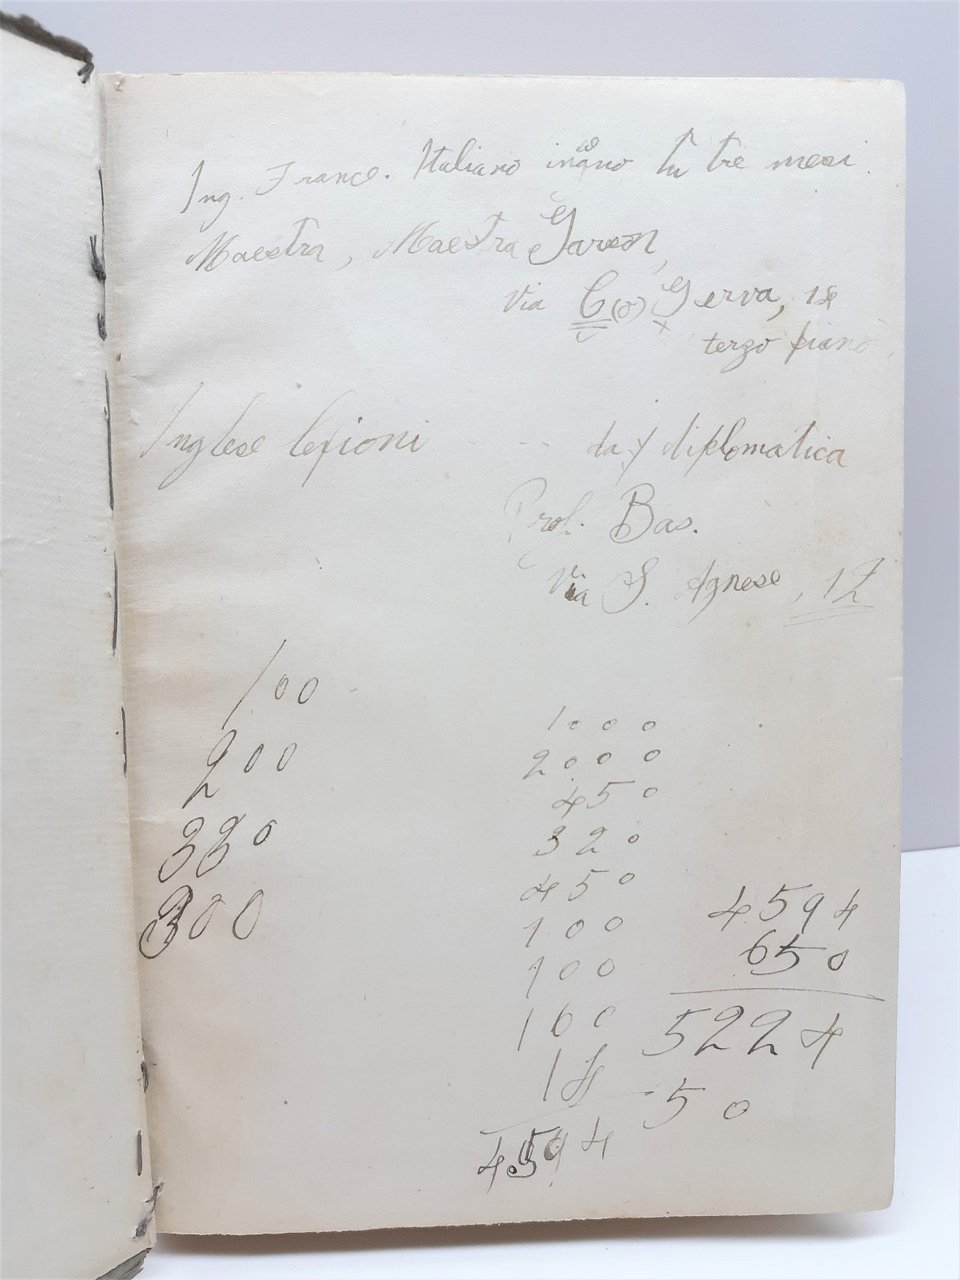 Ing. France. Italiano in tre mesi.
Maestra, Maestra
via C(o) Gerva, 18
terzo piano
Inglese lezioni ..... da diplomatica
Prof. Bas.
Via S. Agnese, 12
100
200
330
300
1000
2000
450
320
450
100
100
160
14
4594
4594
650
5224
50